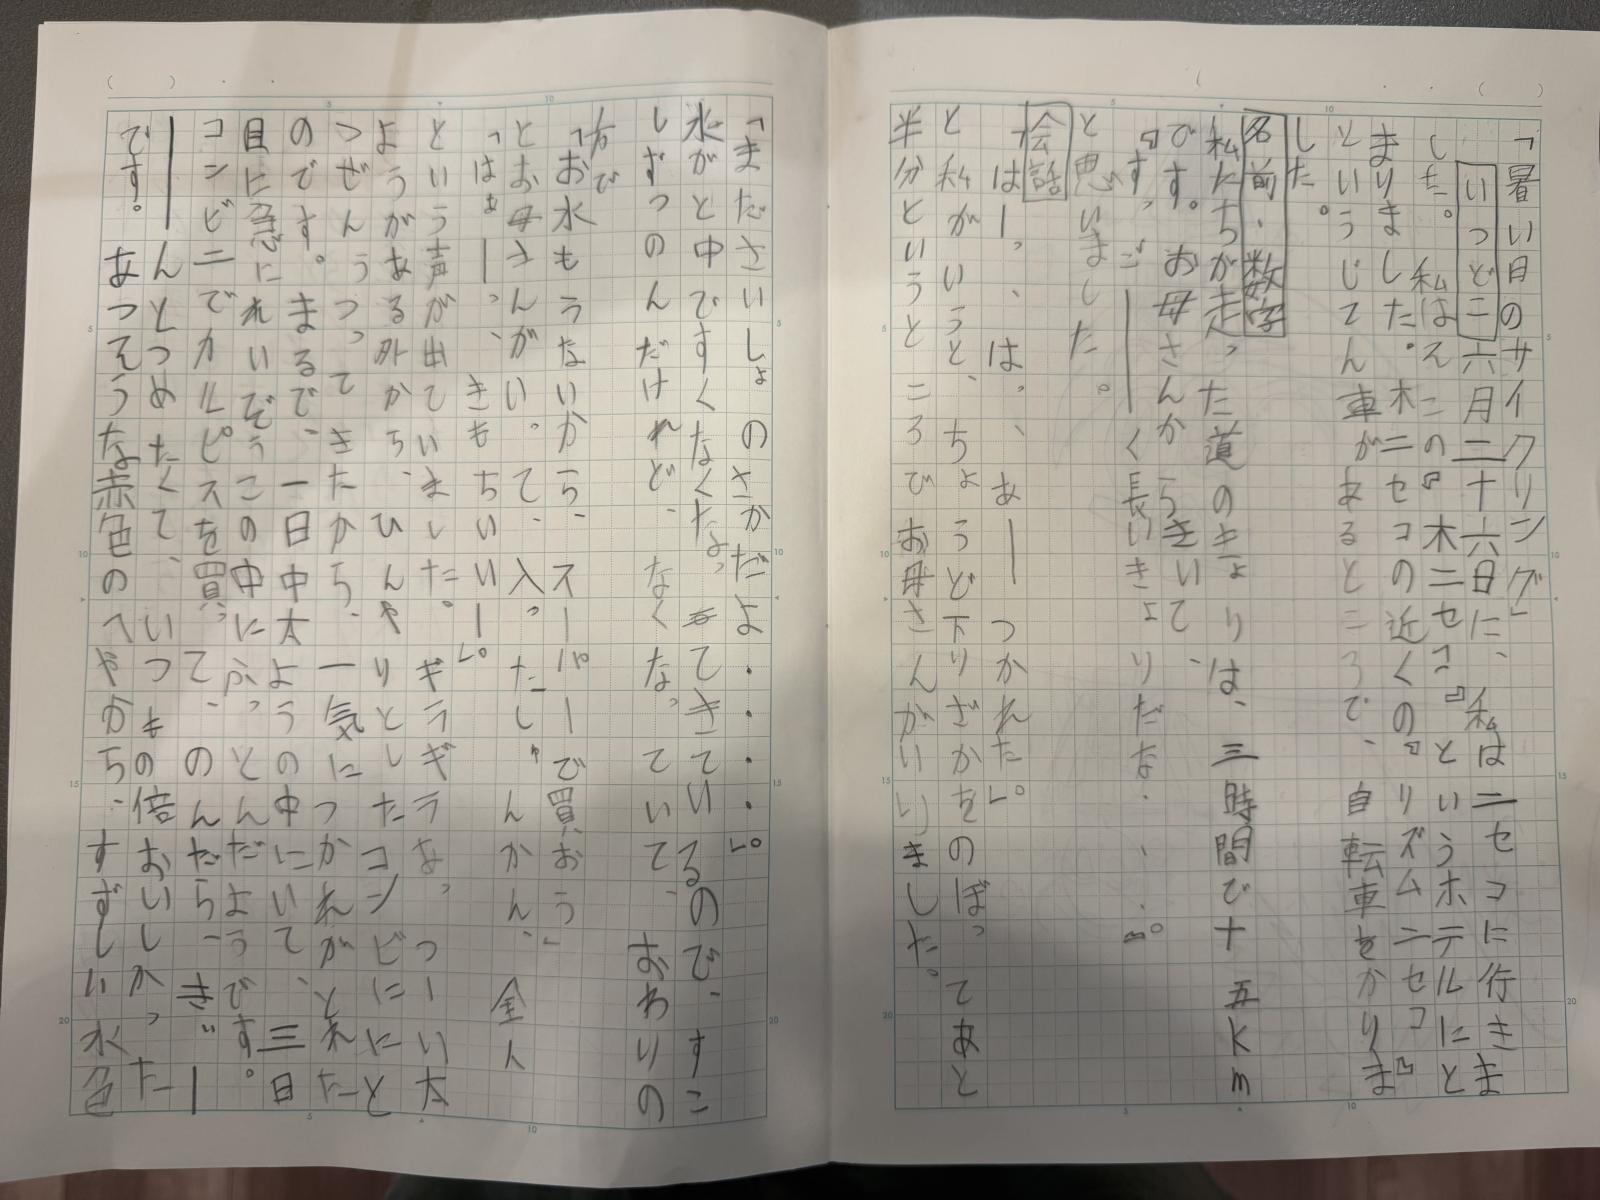 「暑い日のサイクリング」
いつどこ六月二十六日に、私はニセコに行きま
した。私はえこの『木ニセコ』というホテルにと
まりました。木ニセコの近くの『リズムニセコ』
というじてん車があるところで、自転車をかりま
した。
名前・数字
私たちが走った道のきょりは、三時間び十五km
です。お母さんからきいて、
『すっごーーく長いきょりだな・・・・。』
と思いました。
会話
「はーっ、はっ、あーーつかれた。」
と私がいうと、ちょうど下りざかをのぼってあと
半分というところびお母さんがいいました。
「まださいしょのさかだよ・・・・。」
水がと中ですくなくなってきているので、すこ
しずつのんだけれど、なくなっていて、おわりの
方び
「お水もうないから、スーパーで買おう」
とお母さんがいって、入ったしゅんかん、全ん
「はぁーーっ、きもちいいー。」
という声が出ていました。ギラギラなっつーい太
ようがある外から、ひんやりとしたコンビニにと
つぜんうつってきたから、一気につかれがとれた
のです。まるで、一日中太ようの中にいて、三日
目に急にれいぞうこの中にふっとんだようです。
コンビニでカルピスを買って、のんだら、き゛ー
ーーんとつめたくて、いつもの倍おいしかった
です。あつそうな赤色のへやから、すずしい水色